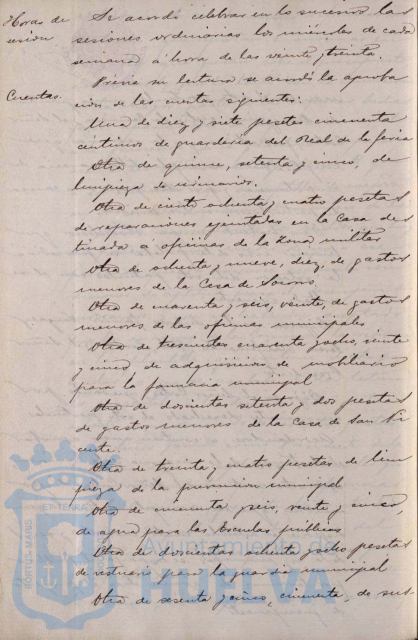 Horas de
sesión
Se acordó celebrar en lo sucesivo las
sesiones ordinarias los miércoles de cada
semana á hora de las veinte y treinta.
Cuentas.
Previa su lectura se acordó la aproba
ción de las cuentas siguientes:
Una de diez y siete pesetas cincuenta
centimos de guarderia del Real de la feria
Otra de quince, setenta y cinco, de
limpieza de urinarios.
Otra de ciento ochenta y cuatro pesetas
de reparaciones ejecutadas en la Casa des
tinada a oficinas de la Zona militar
Otra de ochenta y nueve, diez, de gastos
menores de la Casa de Socorro.
Otra de cuarenta y seis, veinte, de gastos
menores de las oficinas municipales
Otra de trescientas cuarenta y ocho, veinte
y cinco de adquisicion de mobiliario
para la farmacia municipal
Otra de doscientas setenta y dos pesetas
de gastos menores de la Casa de San Vi
cente.
Otra de treinta y cuatro pesetas de lim
pieza de la prevencion municipal
Otra de cincuenta y seis, veinte y cinco,
de agua para las Escuelas públicas
Otra de doscientas ochenta y ocho pesetas
de vestuario para la guardia municipal
Otra de sesenta y cinco, cincuenta, de sus-
PORTUS MARIS
ET TERRAE
Ayuntamiento de
HUELVA